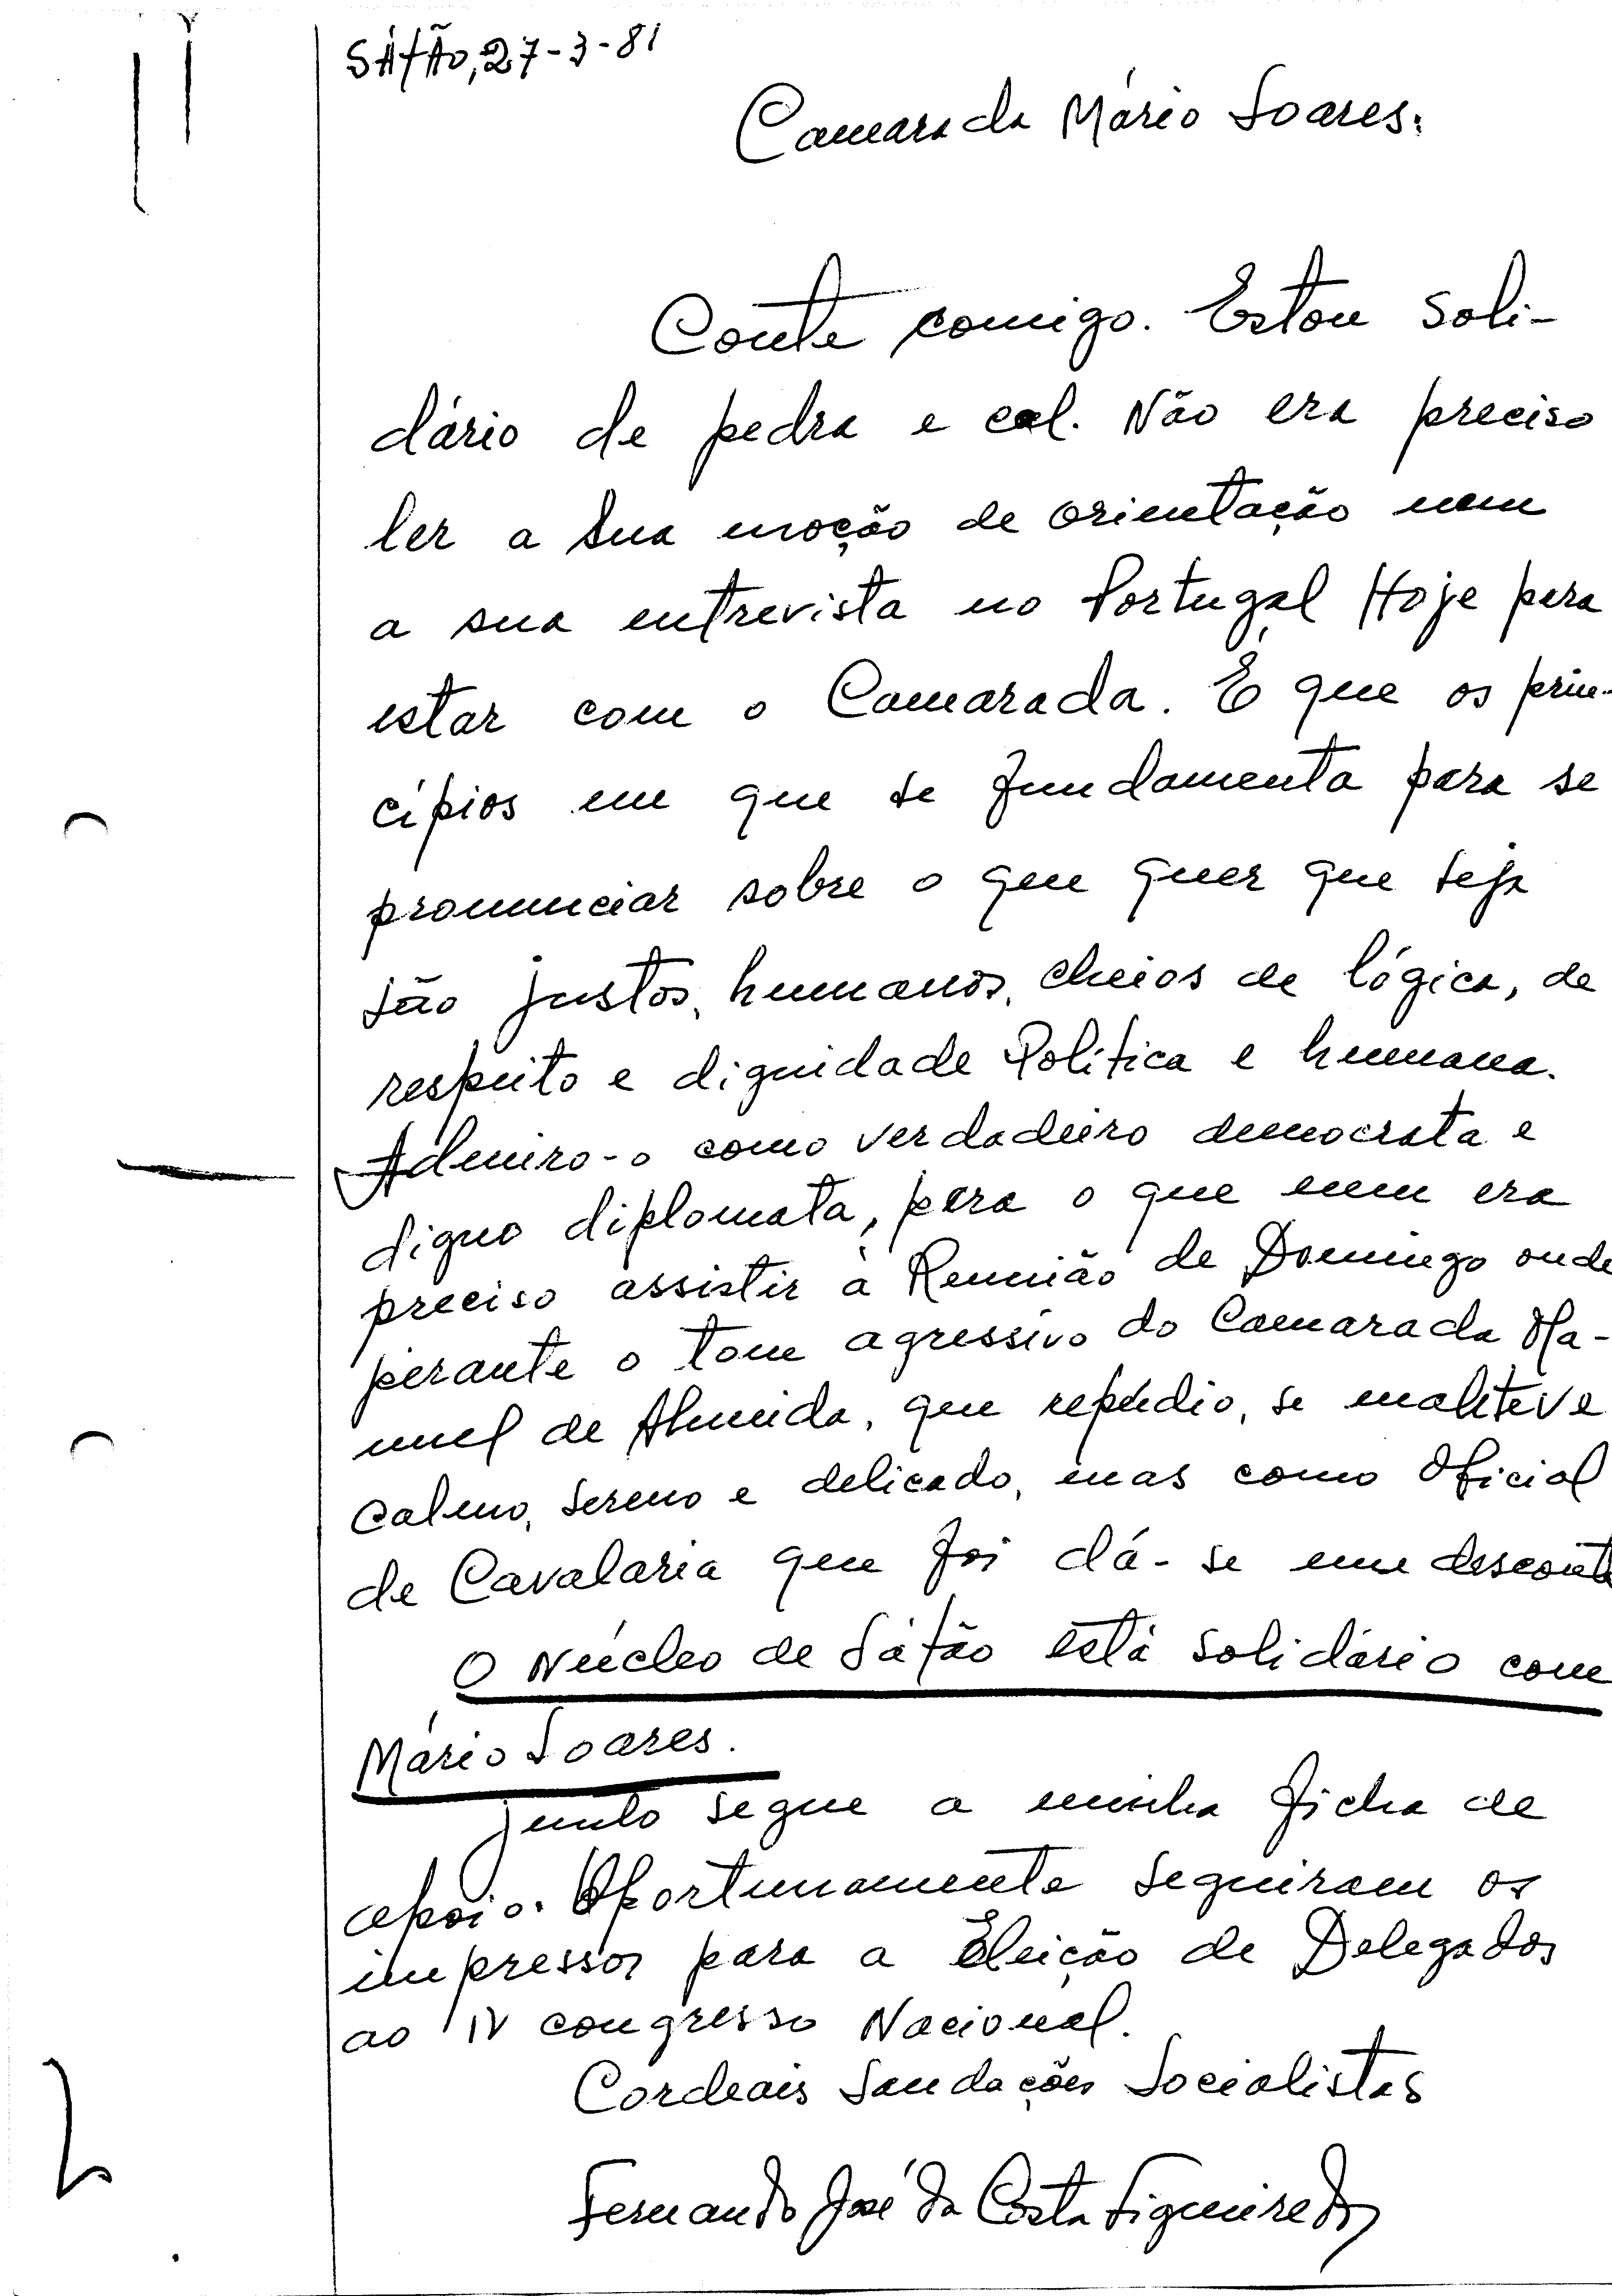 SÁTÃO, 27-3-81
Camarada Mário Soares:
Conte comigo. Estou soli-
dário de pedra e cal. Não era preciso
ler a sua moção de orientação nem
a sua entrevista no Portugal Hoje para
estar com o Camarada. É que os prin-
cípios em que se fundamenta para se
pronunciar sobre o que quer que seja
são justos, humanos, cheios de lógica, de
respeito e dignidade Política e humana.
Admiro-o como verdadeiro democrata e
digno diplomata, para o que nem era
preciso assistir à Reunião de Domingo onde
perante o tom agressivo do Camarada Ma-
nuel de Almeida, que repúdio, se manteve
calmo, sereno e delicado, mas como Oficial
de Cavalaria que foi dá-se um desconto
O Núcleo de Sátão está solidário com
Mário Soares.
Junto segue a minha ficha de
apoio. Oportunamente seguiram os
impressos para a Eleição de Delegados
ao IV congresso Nacional.
Cordeais Saudações Socialistas
Fernando José da Costa Figueiredo